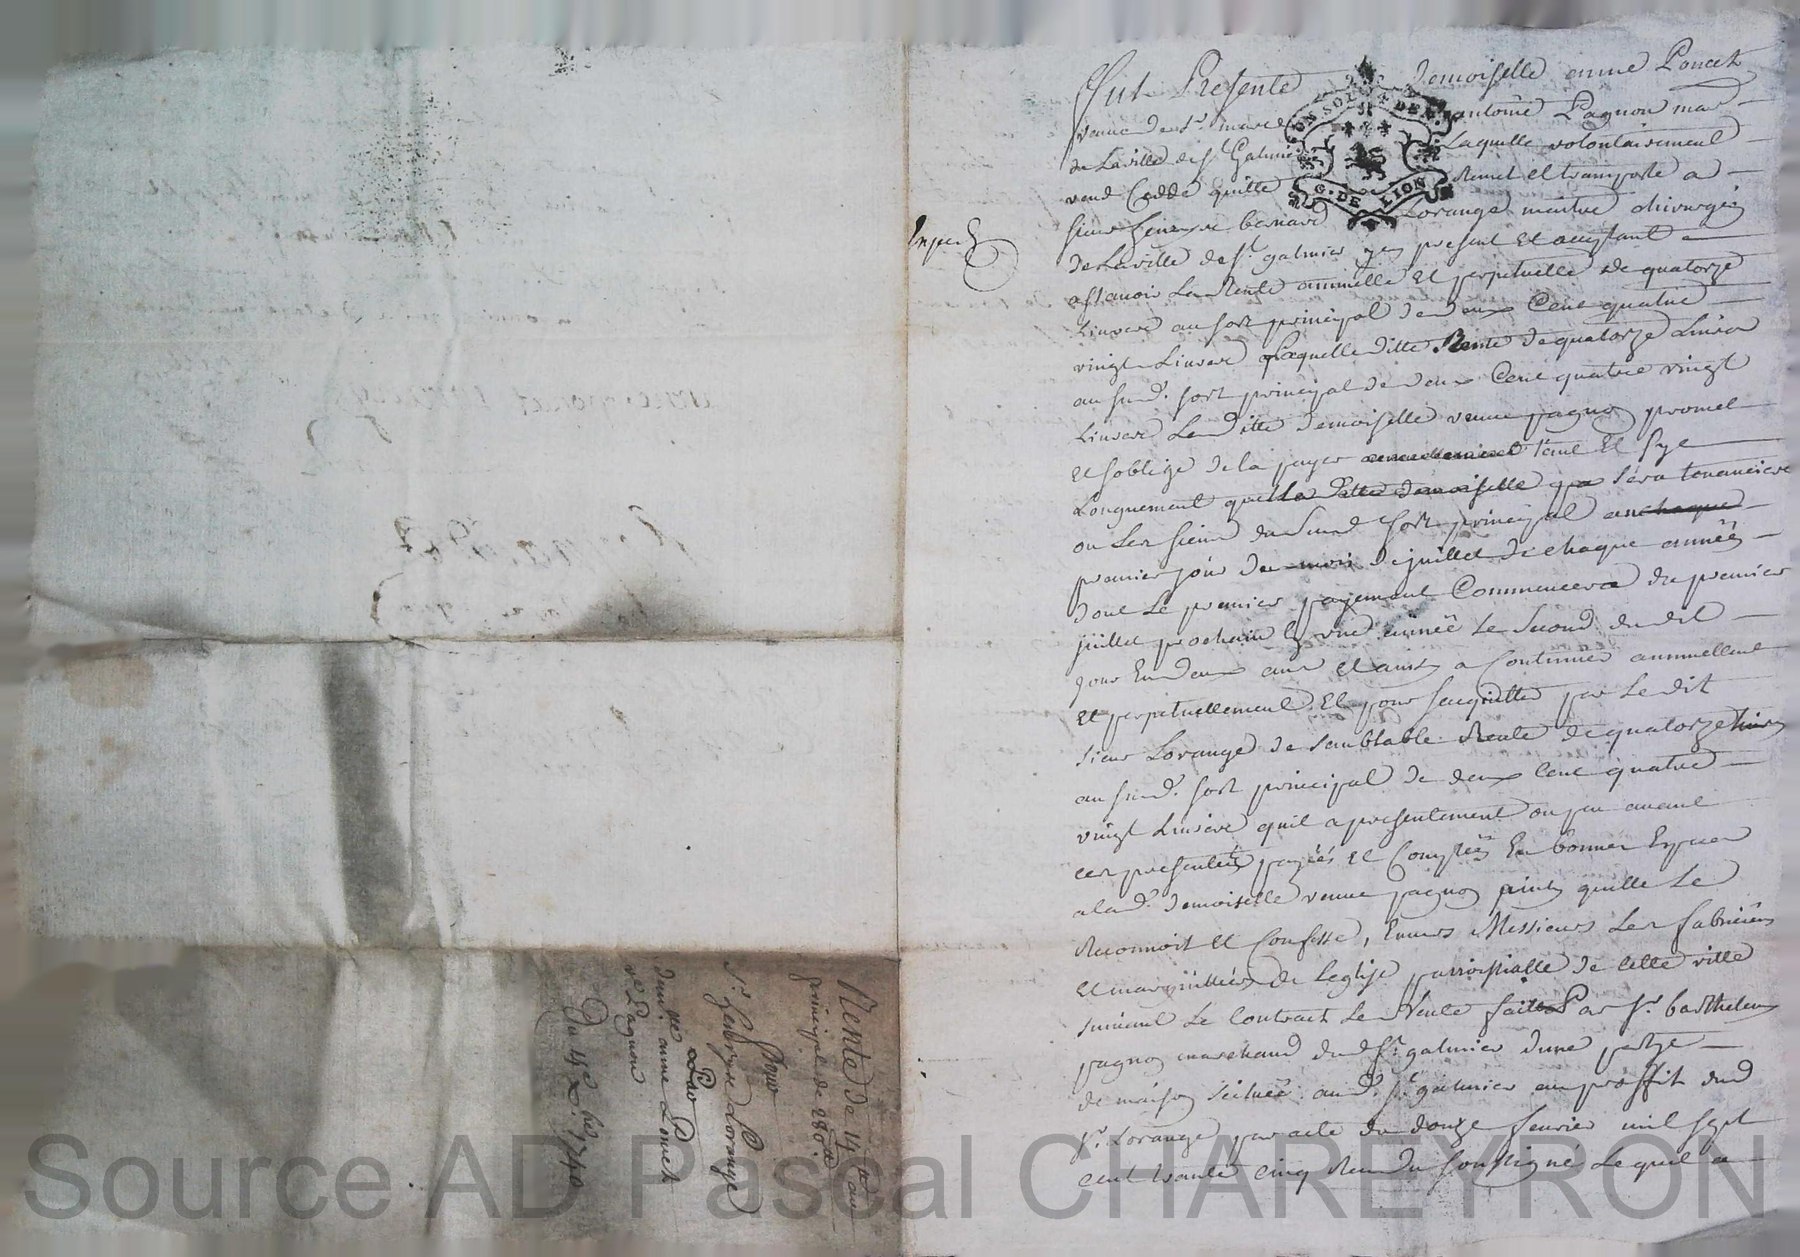 Fut Presente demoiselle anne Poncet
veuve de Sr. marc antoine Pagnon mar-
de Laville de st Galmier Laquelle volontairement
vend Cedde quitte Remet et transporte a
sieur bernard Lorange maitre chirurgien
de Laville de st. galmier present et acceptant
asçavoir La Rente annuelle et perpetuelle de quatorze
Livres au sort principal de deux Cent quatre
vingt Livres Laquelle ditte Rente de quatorze Livres
au sud. sort principal de deux Cent quatre vingt
Livres Lenditte demoiselle veuve pagnon promet
et soblige de la payer tant Et sy
Longuement que La ditte demoiselle sera tenanciere
ou Les siens du Sud sort principal
premier jour du mois de juillet de chaque année
dont Le premier payement Commencera du premier
juillet prochain En une année Le Second du dit
jour En deux ans et ainsy a Continuer annuellement
Et perpetuellement. Et pour par Le dit
sieur Lorange de semblable Rente de quatorze livres
au sud. sort principal de deux Cent quatre
vingt Livres quil a presentement ou peu avant
ces presentes payés et Comptés En bonnes Especes
alad. demoiselle veuve pagnon ainsy quelle Le
Reconnoit et Confesse, Envers Messieurs Les fabriciens
Et marguilliers de Leglise parroissialle de cette ville
suivant Le Contract de Vente faitte Par sr. barthelemy
pagnon marchand dud st. galmier dune partye
de maison scituée aud. st. galmier au proffit dud
sr. Lorange par acte du douze fevrier mil sept
cent trente cinq Receu du soussigné Lequel a
Rente de 14
principal de 280
Pour
Sr. Lorange
Par
anne Poncet
ve Pagnon
Du 4e Xbre 1740
CONSOL DE
G. DE LION
Source AD Pascal CHAREYRON